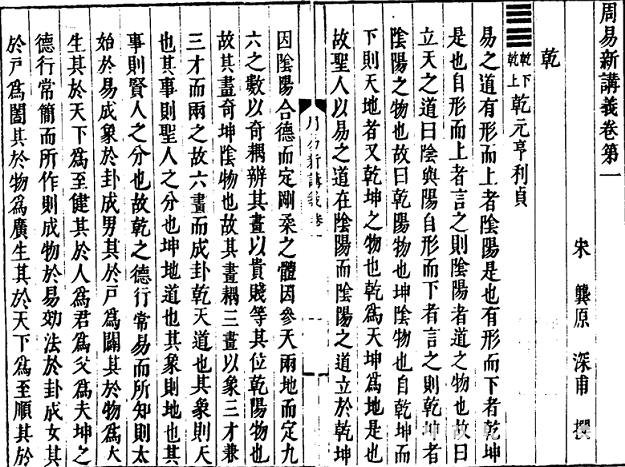 周易新講義卷第一
宋 龔原 深甫 撰
乾
乾下乾上 乾元亨利貞
易之道有形而上者陰陽是也有形而下者乾坤
是也自形而上者言之則陰陽者道之物也故曰
立天之道曰陰與陽自形而下者言之則乾坤者
陰陽之物也故曰乾陽物也坤陰物也自乾坤而
下則天地者又乾坤之物也乾為天坤為地是也
故聖人以易之道在陰陽而陰陽之道立於乾坤
周易新講義卷一
因陰陽合德而定剛柔之體因參天兩地而定九
六之數以奇耦辨其畫以貴賤等其位乾陽物也
故其畫奇坤陰物也故其畫耦三畫以象三才兼
三才而兩之故六畫而成卦乾天道也其象則天
也其事則聖人之分也坤地道也其象則地也其
事則賢人之分也故乾之德行常易而所知則太
始於易成象於卦成男其於戶為闢其於物為大
生其於天下為至健其於人為君為父為夫坤之
德行常簡而所作則成物於易効法於卦成女其
於戶為闔其於物為廣生其於天下為至順其於